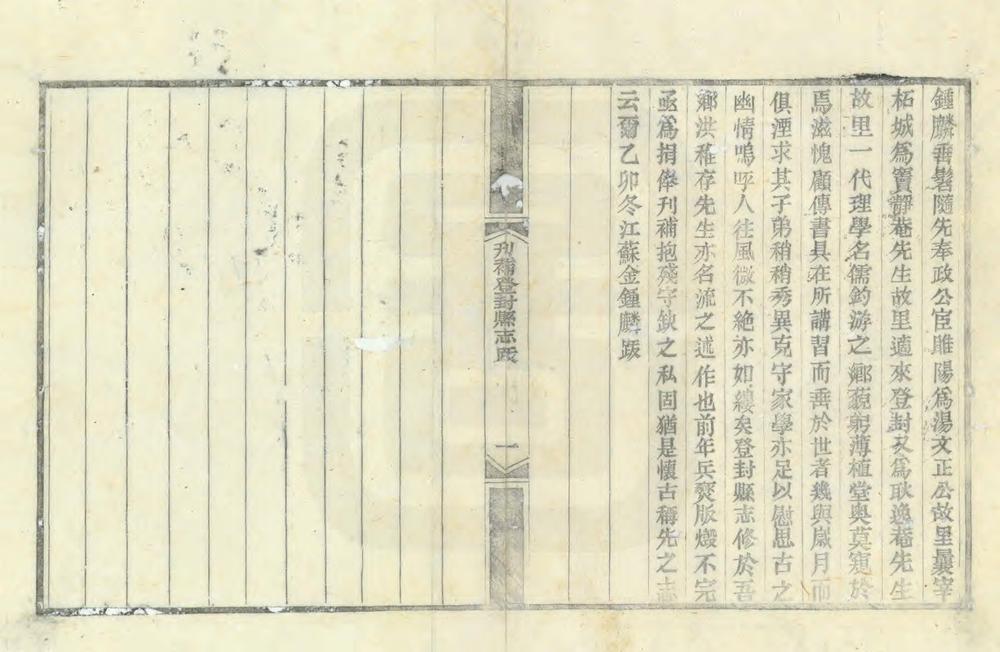 鍾麟垂髫隨先奉政公宦睢陽爲湯文正公故里曩宰
柘城爲竇靜菴先生故里適來登封又爲耿逸菴先生
故里一代理學名儒釣游之鄉藐躬薄植堂奧莫窺於
焉滋愧顧傳書具在所講習而垂於世者幾與歲月而
俱湮求其子弟稍稍秀異克守家學亦足以慰思古之
幽情嗚呼人往風微不絕亦如縷矣登封縣志修於吾
鄉洪稚存先生亦名流之述作也前年兵燹版燬不完
亟爲捐俸刊補抱殘守缺之私固猶是懷古稱先之志
云爾乙卯冬江蘇金鍾麟跋
刊補登封縣志跋
一